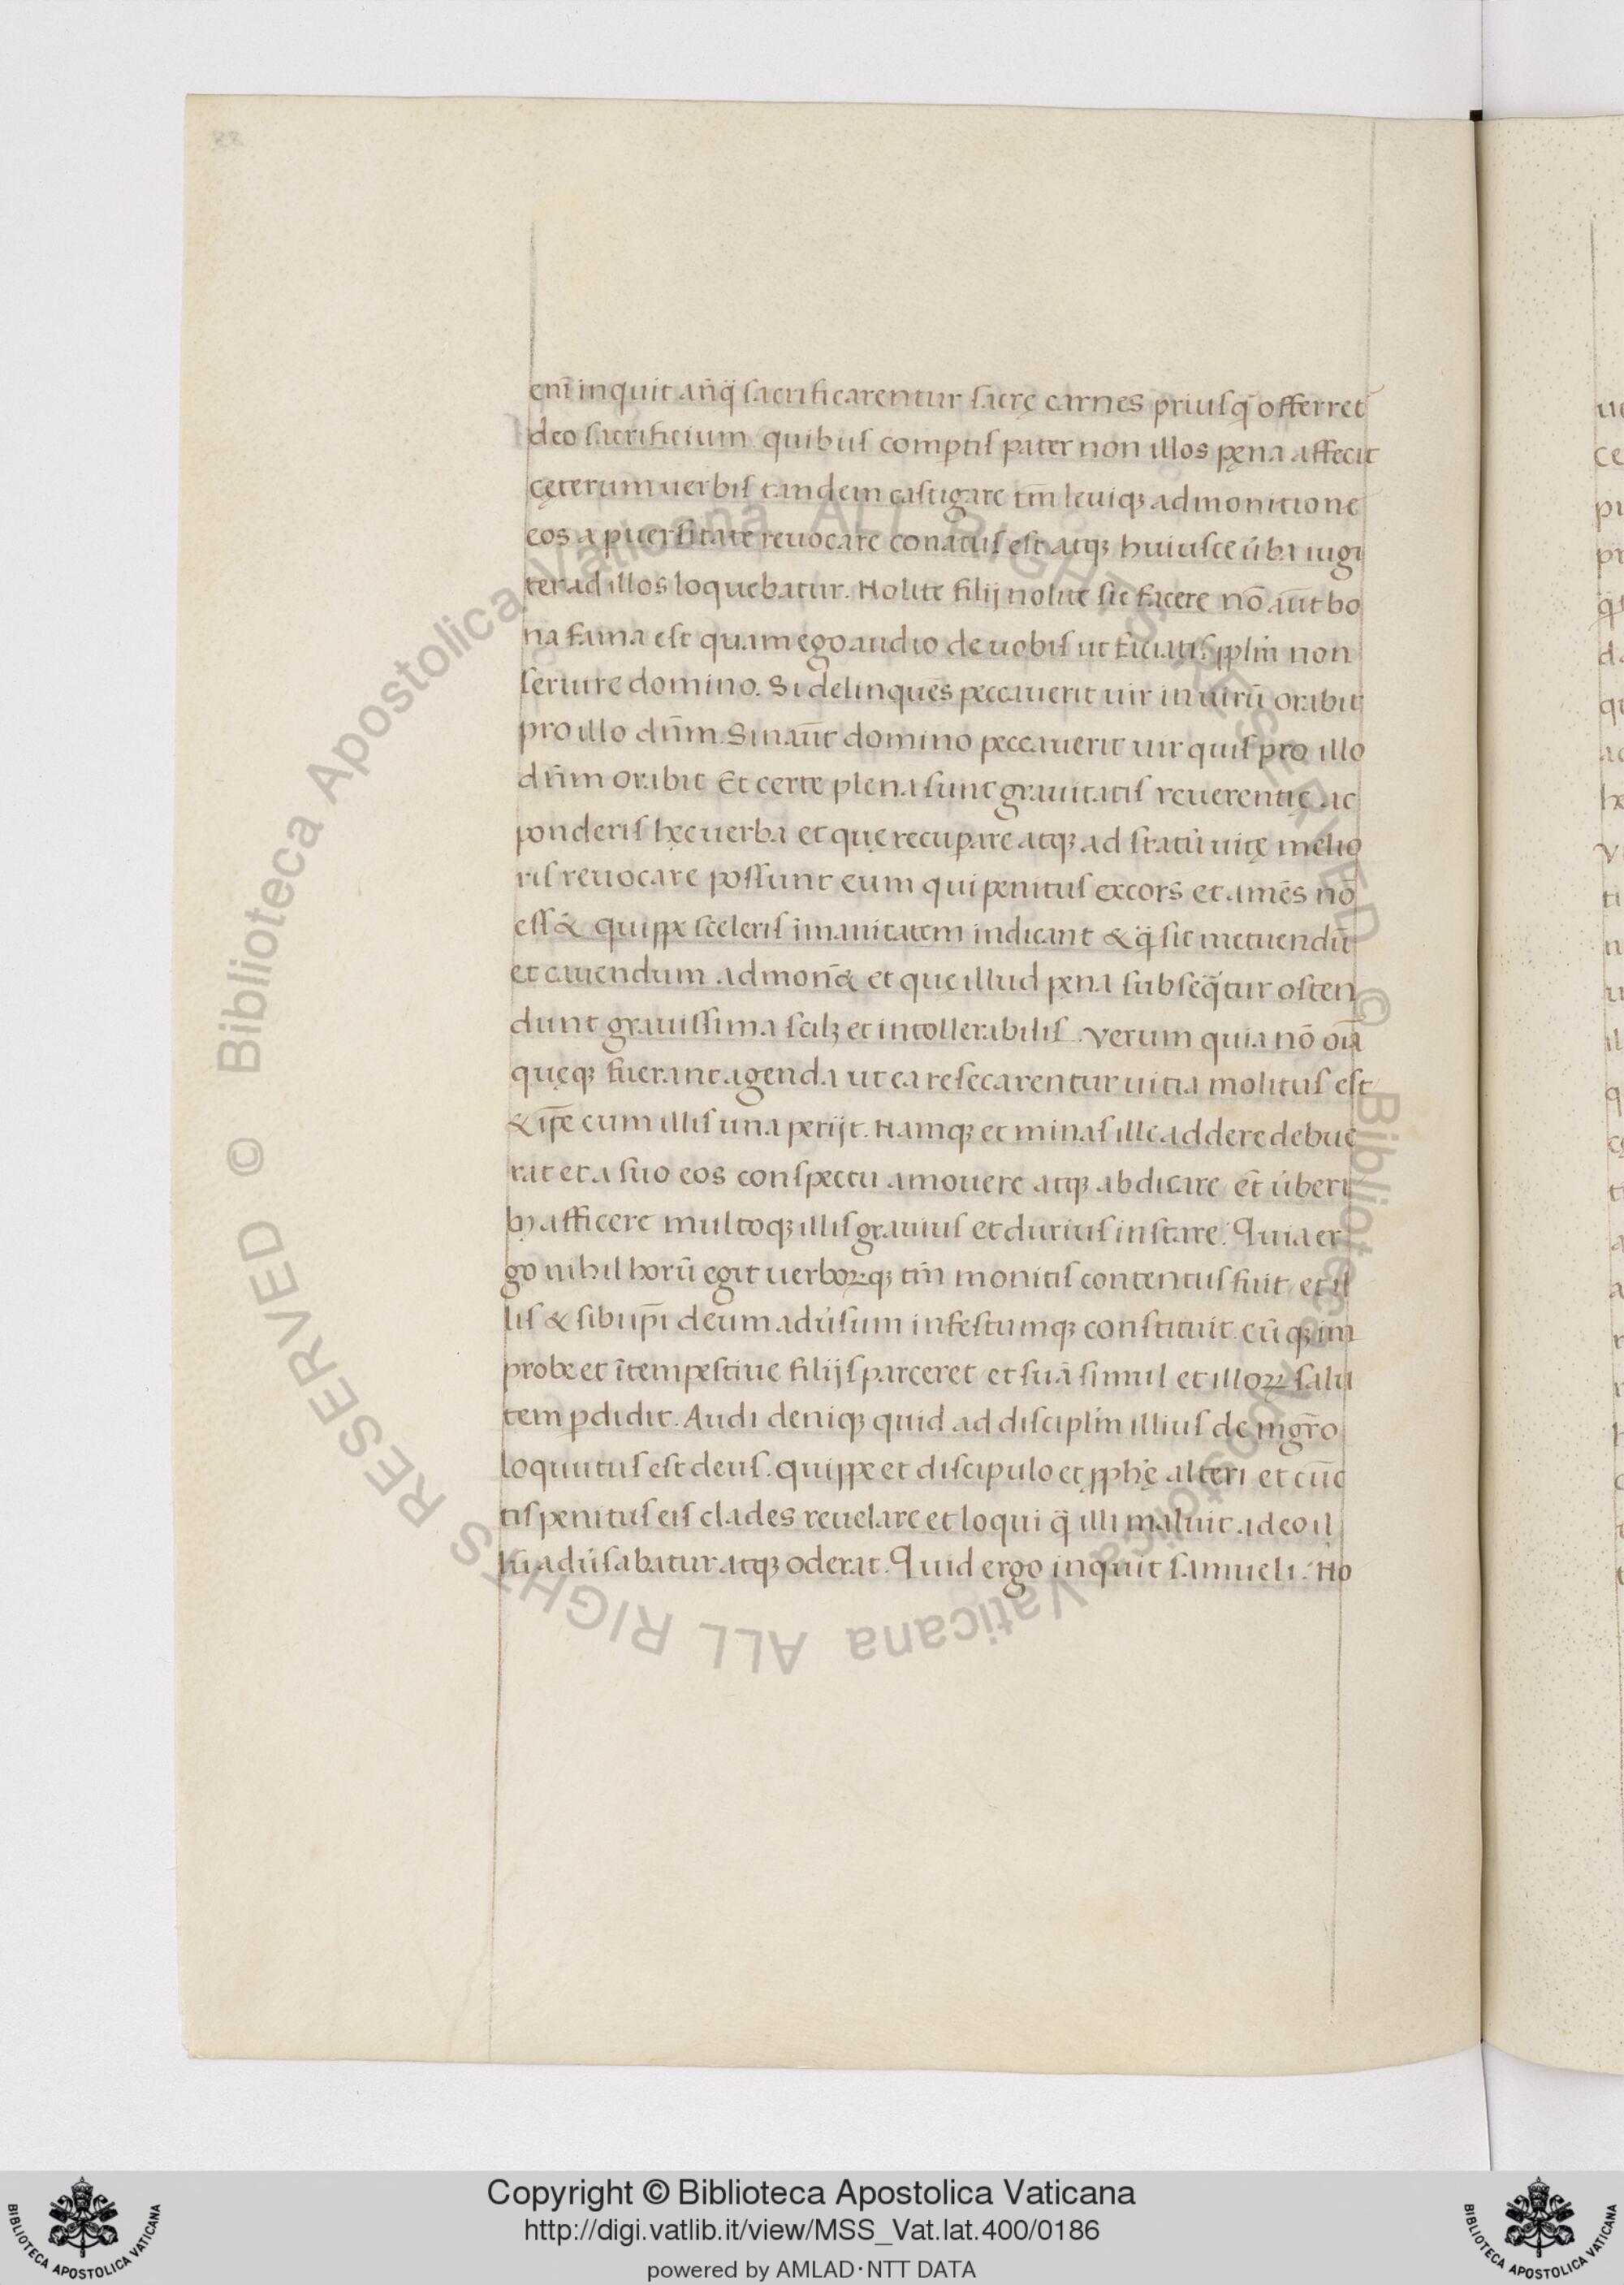 88
enī inquit añq̃ sacrificarentur sacrę carnes priusq̃ offerret
deo sacrificium. quibus comptis pater non illos pęna affecit
cęterum uerbis tandem castigare tm̄ leuiq; admonitione
eos a puersitate reuocare conatus est atq; huiusce úba iugi
ter ad illos loquebatur. Nolite filij nolite sic facere nō aūt bo
na fama est quam ego audio de uobis ut faciatis pplm̄ non
seruire domino. Si delinquēs peccauerit uir in uirū orabit
pro illo dñm. Sin aūt domino peccauerit uir quis pro illo
dñm orabit Et certe plena sunt grauitatis reuerentię ac
ponderis hęc uerba et quę recupare atq; ad statū uitę melio
ris reuocare possunt eum qui penitus excors et amēs nō
ess& quippe sceleris īmanitatem indicant & q̃ sit metuendū
et cauendum admonē& et quę illud pena subseq̃tur osten
dunt grauissima scilz et intollerabilis. Verum quia nō oīa
quęq; fuerant agenda ut ea resecarentur uitia molitus est
& ip̄e cum illis una perijt. Namq; et minas ille addere debue
rat et a suo eos conspectu amouere atq; abdicare et úberi
b; afficere multoq; illis grauius et durius instare. Quia er
go nihil horū egit uerboꝝq; tm̄ monitis contentus fuit et il
lis & sibi ip̄i deum adúsum infestumq; constituit. cūq; im
probe et ītempestiue filijs parceret et suā simul et illoꝝ salu
tem pdidit. Audi deniq; quid ad disciplm̄ illius de mgr̄o
loquutus est deus. quippe et discipulo et pphę alteri et cūc
tis penitus eis clades reuelare et loqui q̃ illi maluit adeo il
lū adúsabatur atq; oderat. Quid ergo inquit samueli. No
© Biblioteca Apostolica Vaticana ALL RIGHTS RESERVED © Biblioteca Apostolica Vaticana ALL RIGHTS RESERVED
BIBLIOTECA APOSTOLICA VATICANA
Copyright © Biblioteca Apostolica Vaticana
http://digi.vatlib.it/view/MSS_Vat.lat.400/0186
powered by AMLAD·NTT DATA
BIBLIOTECA APOSTOLICA VATICANA